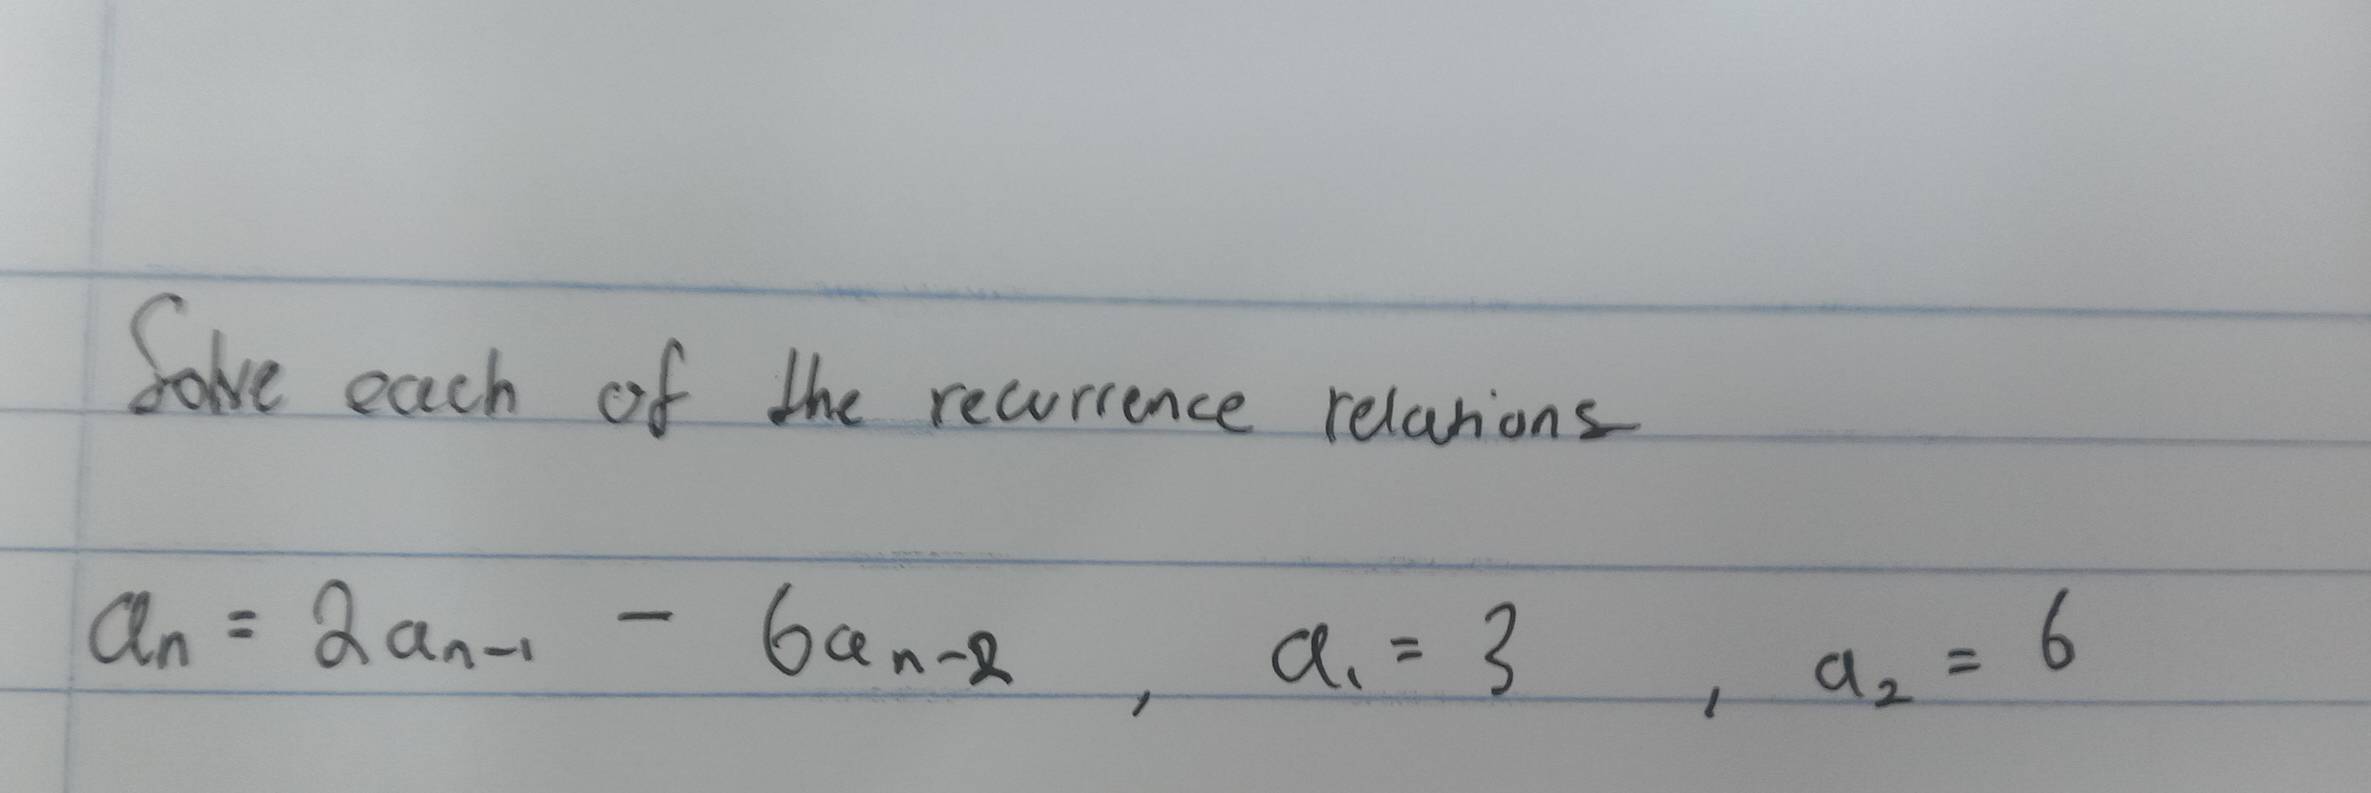 Solve each of the recurrence relations
aₙ = 2aₙ₋₁ - 6aₙ₋₂ , a₁ = 3 , a₂ = 6